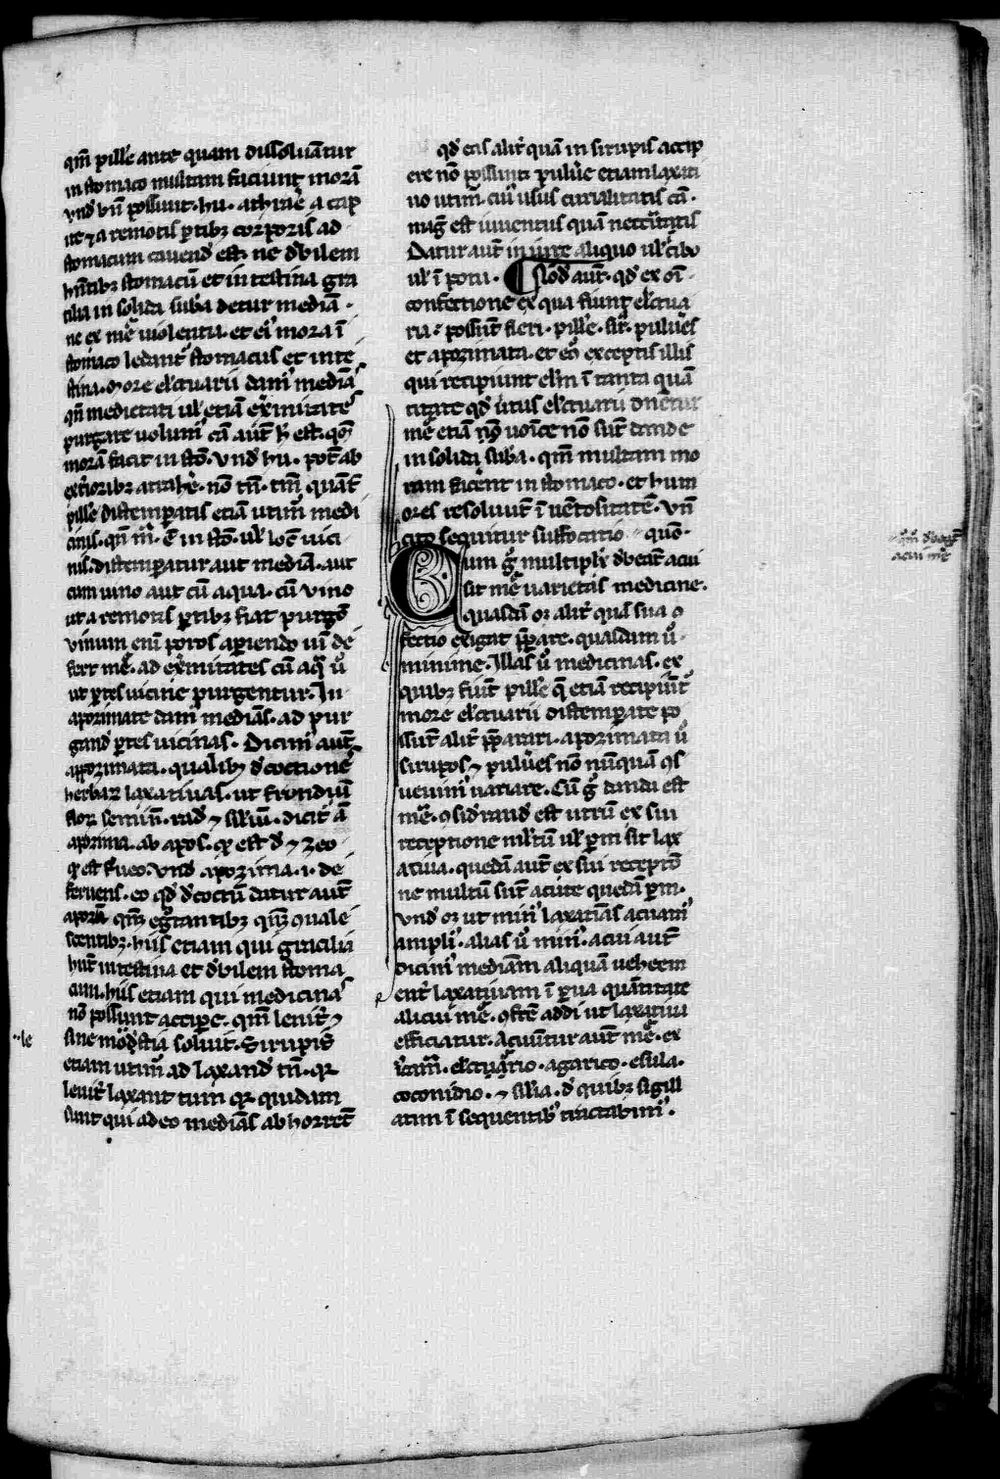 qm̄ pill'e ante quam dissoluātur
in stomaco multam faciunt morā
vnd' bn̄ possunt. hu. athrae a cap
ite ⁊ a remotis ꝑtibꝫ corporis ad
stomacum cauend' est. ne d'bilem
hn̄tibꝫ stomacū et intestina gra
cilia in solida suba detur mediā.
ne ex me uiolentia. et ei' mora ī
stomaco ledant' stomacus et inte
stina. more el'ctuarii dam' mediā
qn̄ medietati ul' etiā ex̄mitates
purgare uolum' cā aūt h' est. qm̄
morā facit in sto. vnd' hu. pot' ab
ext'ioribꝫ atrahe'. nō tn̄. tm̄ quāt
pill'e distemperatis etiā utim' medi
cinis. qn̄ m̄. ē in sto. ul' loc' uici
nis. distemperatur aut mediā. aut
cum uino aut cū aqua. cū vino
ut a remotis ꝑtibꝫ fiat purgo
vinum eni' poros aperiendo ui' de
fert me. ad ex̄mitates cū aq̄ u°
ut ꝑtes uicine purgentur. In
apozimate dam' mediās. ad pur
gand' ꝑtes uicinas. Dicim' aut
apozimata. qualibꝫ d'coctione
herbarꝫ laxatiuas. ut frondiū
flor seminū. rad' ⁊ silium. dicit' ā
apozima. ab apos. qꝫ est d' ⁊ zeo
qꝫ est ferueo. vnd' apozima. i. de
feruens. eo qd' d'coctū datur aut
apoza' qm̄ egrotantibꝫ qm̄ ꝯuale
scentibꝫ. hiis etiam qui gracilia
hn̄t intestina et d'bilem stoma
cum. hiis etiam qui medicinas
nō possunt accipe. qm̄ leuit' ⁊
sine mod'stia soluit. Sirupis
etiam utim' ad laxand' tn̄. qꝫ
leuit' laxant tum qꝫ quidam
sunt qui adeo mediās abhorrēt
le
qd' eas alit' quā in sirupis accip
ere nō possunt. puluē etiam laxati
uo utim'. cui' usus curialitatis cā.
mag' est inuentus quā necc̄itatis
Datur aut in iure aliquo ul' cibo
ul' ī potu. Nod' aut. qd' ex oī
confectione ex qua fiunt el'ctua
ria. possūt fieri. pill'e. sir'. puluēs
et apozimata. et eo exceptis illis
qui recipiunt elm̄ ī tanta quā
titate qd' uirtus el'ctuarii dn̄etur
me etiā nō uoicē nō sūt dande
in solida suba. qm̄ multam mo
ram facent in stomaco. et hum
ores resoluūt ī uētositatē. vn̄
cito sequitur suffocatio. quo.
Cum g° multiplr d'beāt acui
sit me uarietas medicine.
quasdā oꝫ alit' quā sua ꝯ
fectio exigat ꝑpare. quasdam u°.
minime. Illas u° medicinas. ex
quibꝫ fiūt pill'e q̄ etiā recipiūt
more el'ctuarii distemperate po
ssūt alit' ꝑparari. apozimata u°
sirupos ⁊ puluēs nō nūquā ꝯs
ueuim' uariare. Cū g° danda est
me. ꝯsid'rand' est utrū ex sui
receptione ml'tū ul' ꝑm sit lax
atiua. quedā aut ex sui recepto
ne multū sūt acute quedā ꝑm.
vnd' oꝫ ut min' laxatiuas acuam'
ampli'. alias u° min'. acui aut
dicim' mediam aliquā uehem
ent' laxatiuam ī ꝑua quātitate
alicui me. ꝯfte addi ut laxatiui
efficiatur. Acuūtur aut me. ex
el'ctuario. agarico. esula.
coconidio. ⁊ silia. d' quibꝫ sigill
atim ī sequentibꝫ tractabim'.